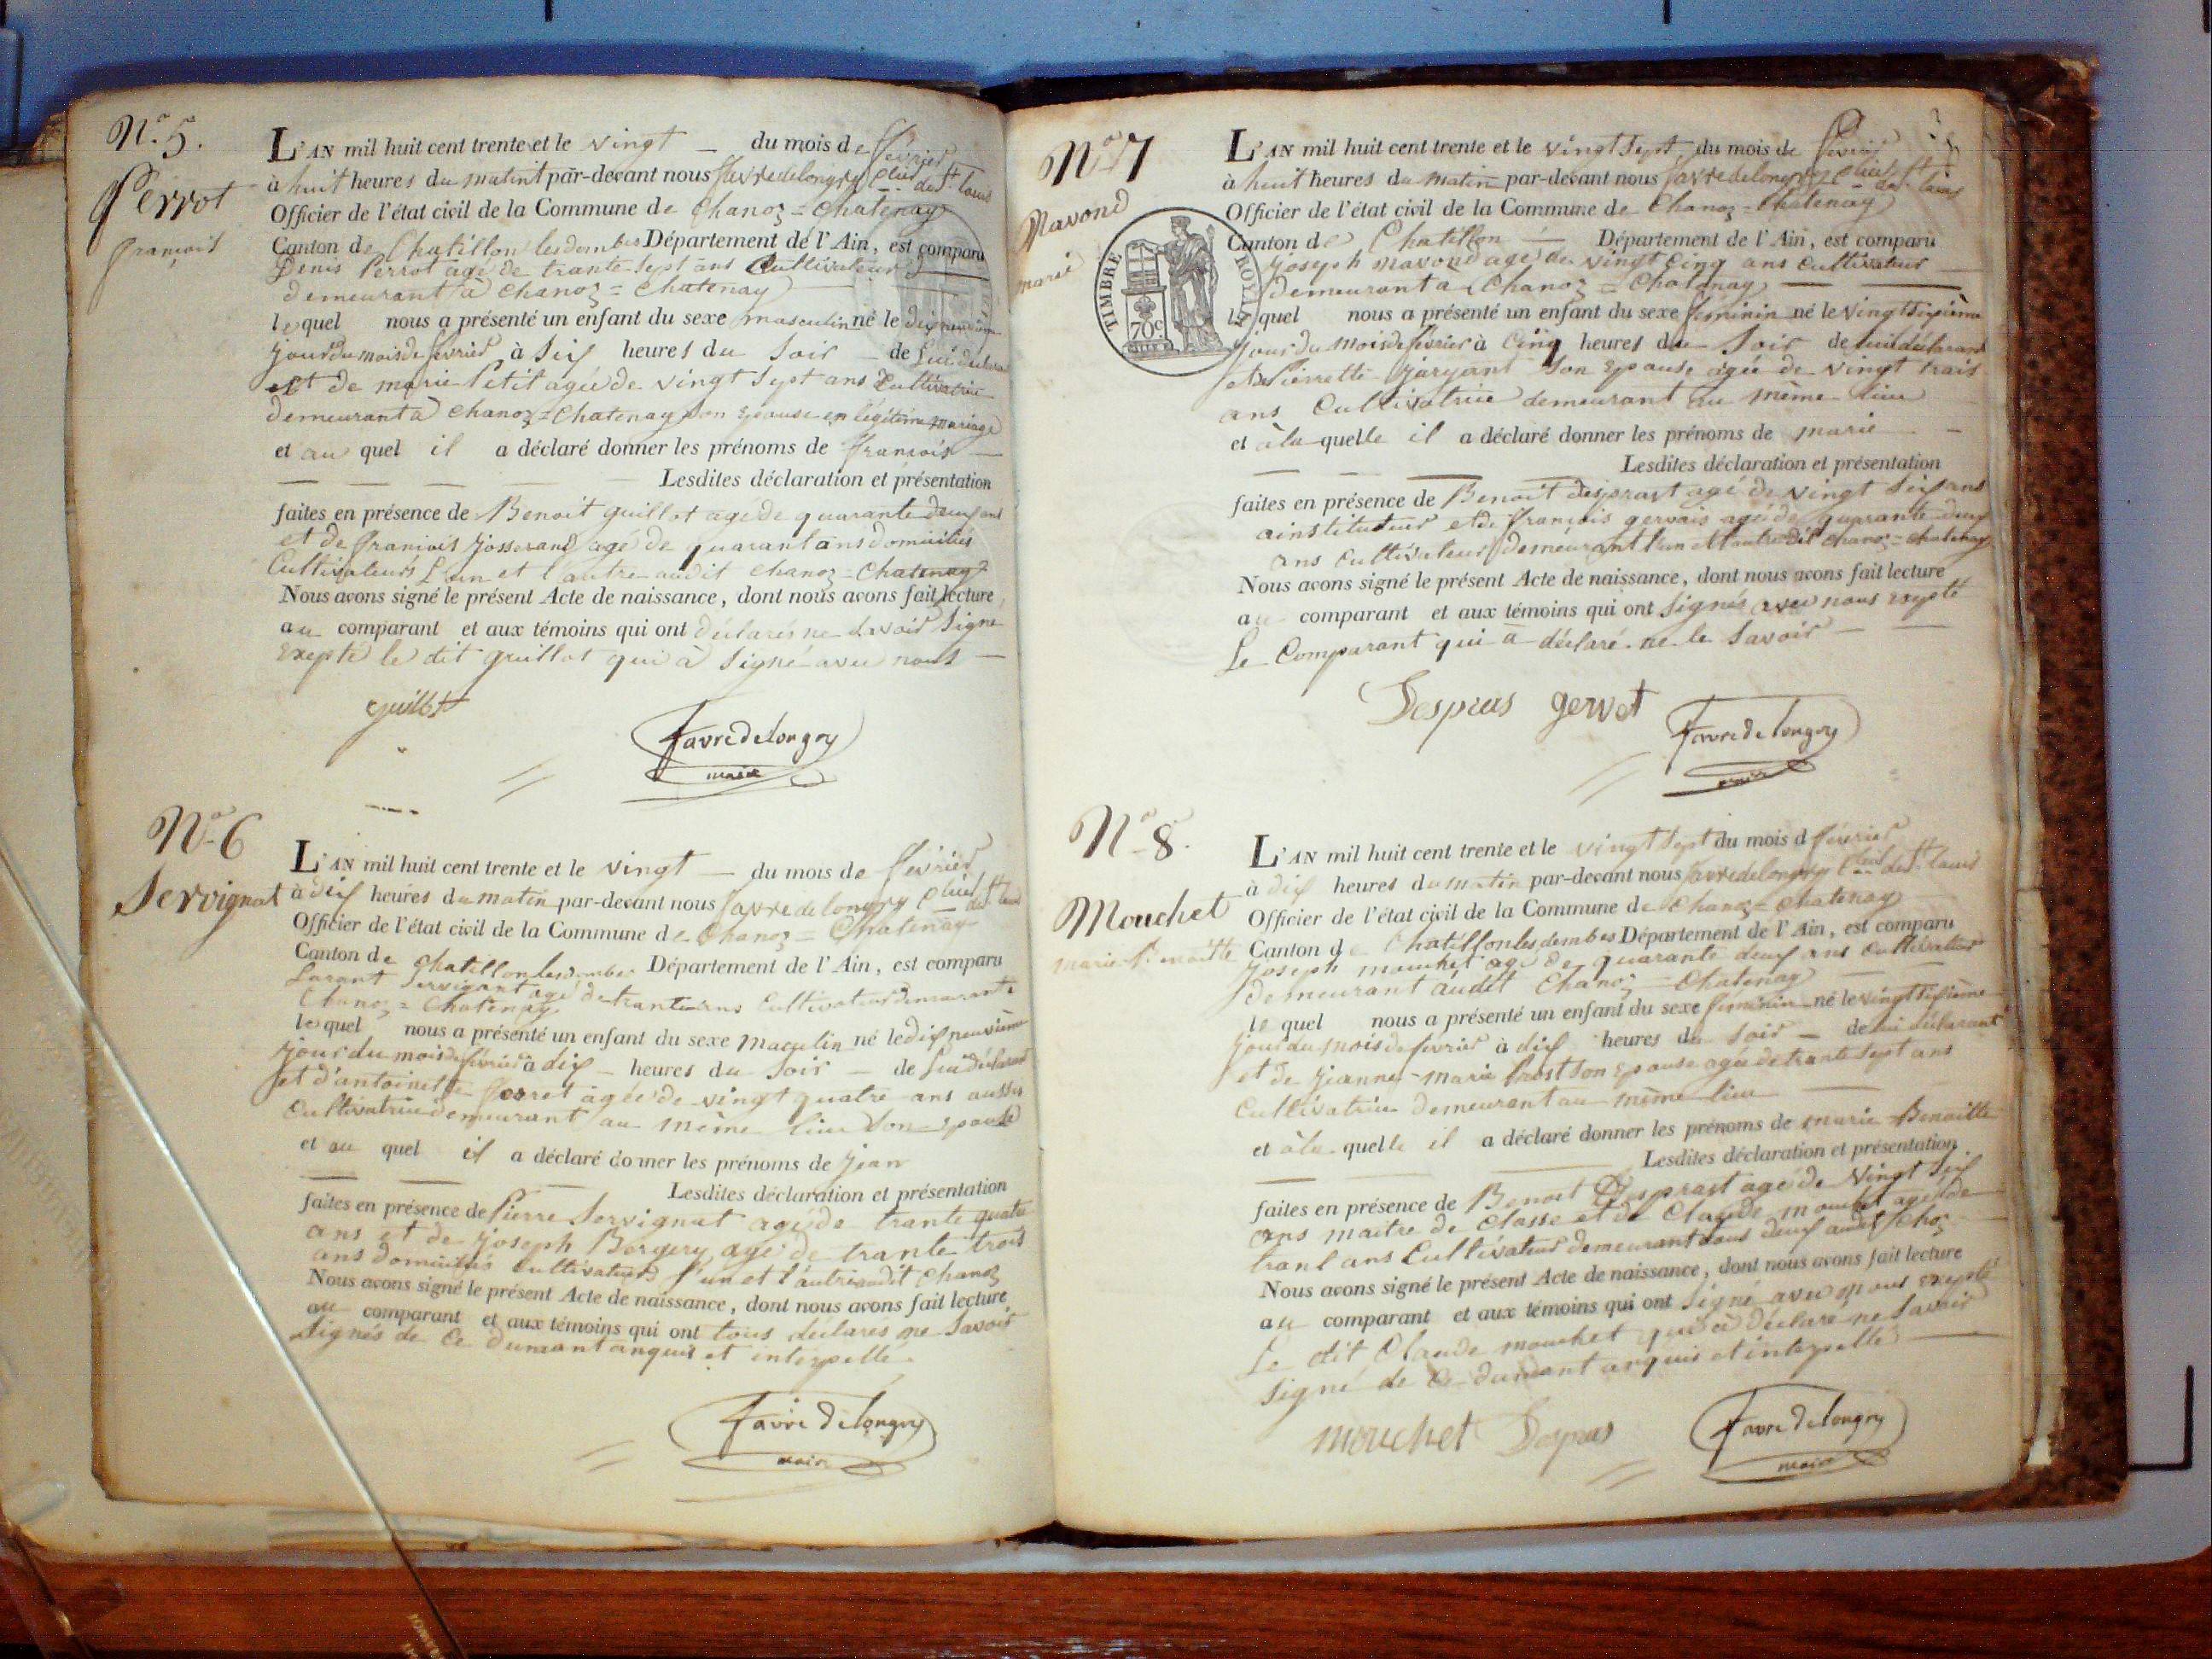 N.o 5.
Perrot
françois
L'AN mil huit cent trente et le vingt — du mois de février
à huit heures du matin par-devant nous favredelongry Clier de St. Louis
Officier de l'état civil de la Commune de Chanoz = Chatenay
Canton de Chatillon lesdombes Département de l'Ain, est comparu
Denis Perrot agé de trante sept ans Cultivateur
demeurant à Chanoz = Chatenay
lequel nous a présenté un enfant du sexe masculin né le dix neuvième
jour du mois de février à Six heures du Soir — de Lui déclarant
et de marie Petit agée de vingt Sept ans Cultivatrice
demeurant à Chanoz = Chatenay Son Epouse en légitime mariage
et au quel il a déclaré donner les prénoms de françois —
Lesdites déclaration et présentation
faites en présence de Benoit guillot agé de quarante deux ans
et de françois Josserand agé de quarant ans domiciliés
Cultivateurs L'un et l'autre audit Chanoz = Chatenay
Nous avons signé le présent Acte de naissance, dont nous avons fait lecture
au comparant et aux témoins qui ont déclarés ne Savoir Signe
Exepté le dit guillot qui à Signé avec nous —
guillot
favredelongry
maire
N.o 6
Servignat
L'AN mil huit cent trente et le vingt — du mois de février
à dix heures du matin par-devant nous favre de longry Clier de St. Louis
Officier de l'état civil de la Commune de Chanoz = Chatenay
Canton de Chatillon lesdombes Département de l'Ain, est comparu
agé de Cultivateur demeurant à
Chanoz = Chatenay
lequel nous a présenté un enfant du sexe maculin né le dix neuvième
jour du mois de février à dix — heures du Soir — de Lui déclarant
et d'antoinette ferret agée de vingt quatre ans aussi
Cultivatrice demeurant au même lieu Son Epouse
et au quel il a déclaré donner les prénoms de Jean
Lesdites déclaration et présentation
faites en présence de Pierre Servignat agé de trante quatre
ans et de joseph Bergery agé de trante trois
ans domiciliés Cultivateurs l'un et l'autre audit Chanoz
Nous avons signé le présent Acte de naissance, dont nous avons fait lecture
au comparant et aux témoins qui ont tous déclarés ne Savoir
Signés de Ce dumant anquis et interpellé.
favre de longry
maire
N.o 7
Mavond
marie
TIMBRE ROYAL
70c
L'AN mil huit cent trente et le vingt Sept du mois de février
à huit heures du matin par-devant nous favredelongry Clier de St. Louis
Officier de l'état civil de la Commune de Chanoz = Chatenay
Canton de Chatillon — Département de l'Ain, est comparu
Joseph mavond agé de vingt Cinq ans Cultivateur
demeurant à Chanoz = Chatenay
lequel nous a présenté un enfant du sexe feminin né le vingt Sixième
jour du mois de février à Cinq heures du Soir de lui déclarant
et de Pierrette Son Epouse agée de vingt trais
ans Cultivatrice demeurant au même lieu
et à la quelle il a déclaré donner les prénoms de marie —
Lesdites déclaration et présentation
faites en présence de Benoit Desprast agé de vingt Six ans
instituteur et de françois gervais agé de quarante deux
ans Cultivateur demeurant l'un et l'autre dit Chanoz = Chatenay
Nous avons signé le présent Acte de naissance, dont nous avons fait lecture
au comparant et aux témoins qui ont Signés avec nous exepté
Le Comparant qui a déclaré ne le Savoir —
Despras gervet
favre de longry
maire
N.o 8.
Mouchet
marie Benoitte
L'AN mil huit cent trente et le vingt Sept du mois d février
à dix heures du matin par-devant nous favredelongry Clier de St. Louis
Officier de l'état civil de la Commune de Chanoz = Chatenay
Canton de Chatillon les dombes Département de l'Ain, est comparu
Joseph mouchet agé de quarante deux ans Cultivateur
demeurant audit Chanoz = Chatenay
lequel nous a présenté un enfant du sexe feminin né le vingt Sixième
jour du mois de février à dix heures du Soir — de lui déclarant
et de Jeanne-marie Prost Son Epouse agée de trante Sept ans
Cultivatrice demeurant au même lieu
et à la quelle il a déclaré donner les prénoms de marie Benoitte
Lesdites déclaration et présentation
faites en présence de Benoit Desprast agé de Vingt Six
ans maitre de Classe et de Claude mouchet agé de
trant ans Cultivateur demeurant tous deux audit Choz
Nous avons signé le présent Acte de naissance, dont nous avons fait lecture
au comparant et aux témoins qui ont Signé avec nous exepté
Le dit Claude mouchet qui à déclaré ne Savoir
Signé de Ce dumant anquis et interpellé
mouchet Despras
favre de longry
maire